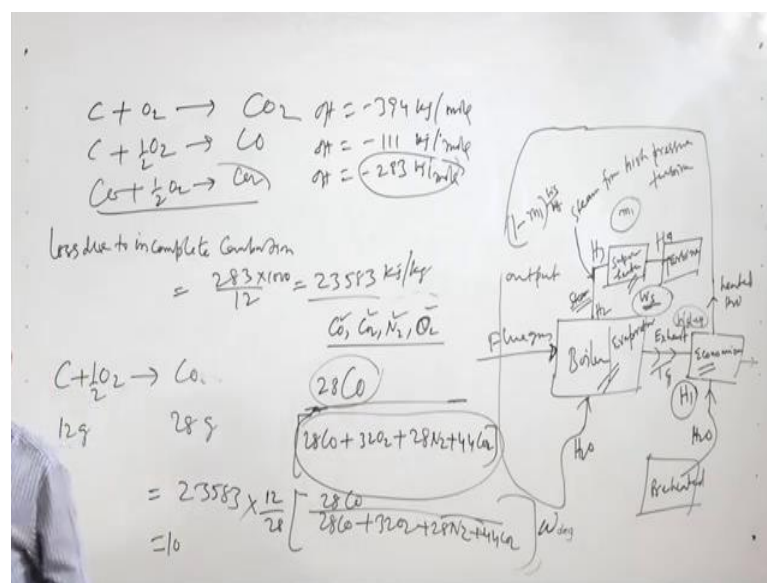 C + O2 → CO2 ΔH = -394 kJ/mole
C + 1/2 O2 → CO ΔH = -111 kJ/mole
CO + 1/2 O2 → CO2 ΔH = -283 kJ/mole
Loss due to incomplete Combustion
= 283×1000 / 12 = 23583 kJ/kg
CO, CO2, N2, O2
C + 1/2 O2 → CO
12g 28g
28CO
[28CO + 32O2 + 28N2 + 44CO2]
= 23583 × 12/28 [28CO / 28CO + 32O2 + 28N2 + 44CO2] Wdeg
= 10
Steam from high pressure
turbine
(1-m1)
m1
output
H3
H4
Super
heater
Turbine
Steam
H2
Ws
heated
H2O
Flue gas
Boiler
Evaporator
Exhaust
Tg
Wdeg
Economiser
H1
H2O
H2O
Preheated